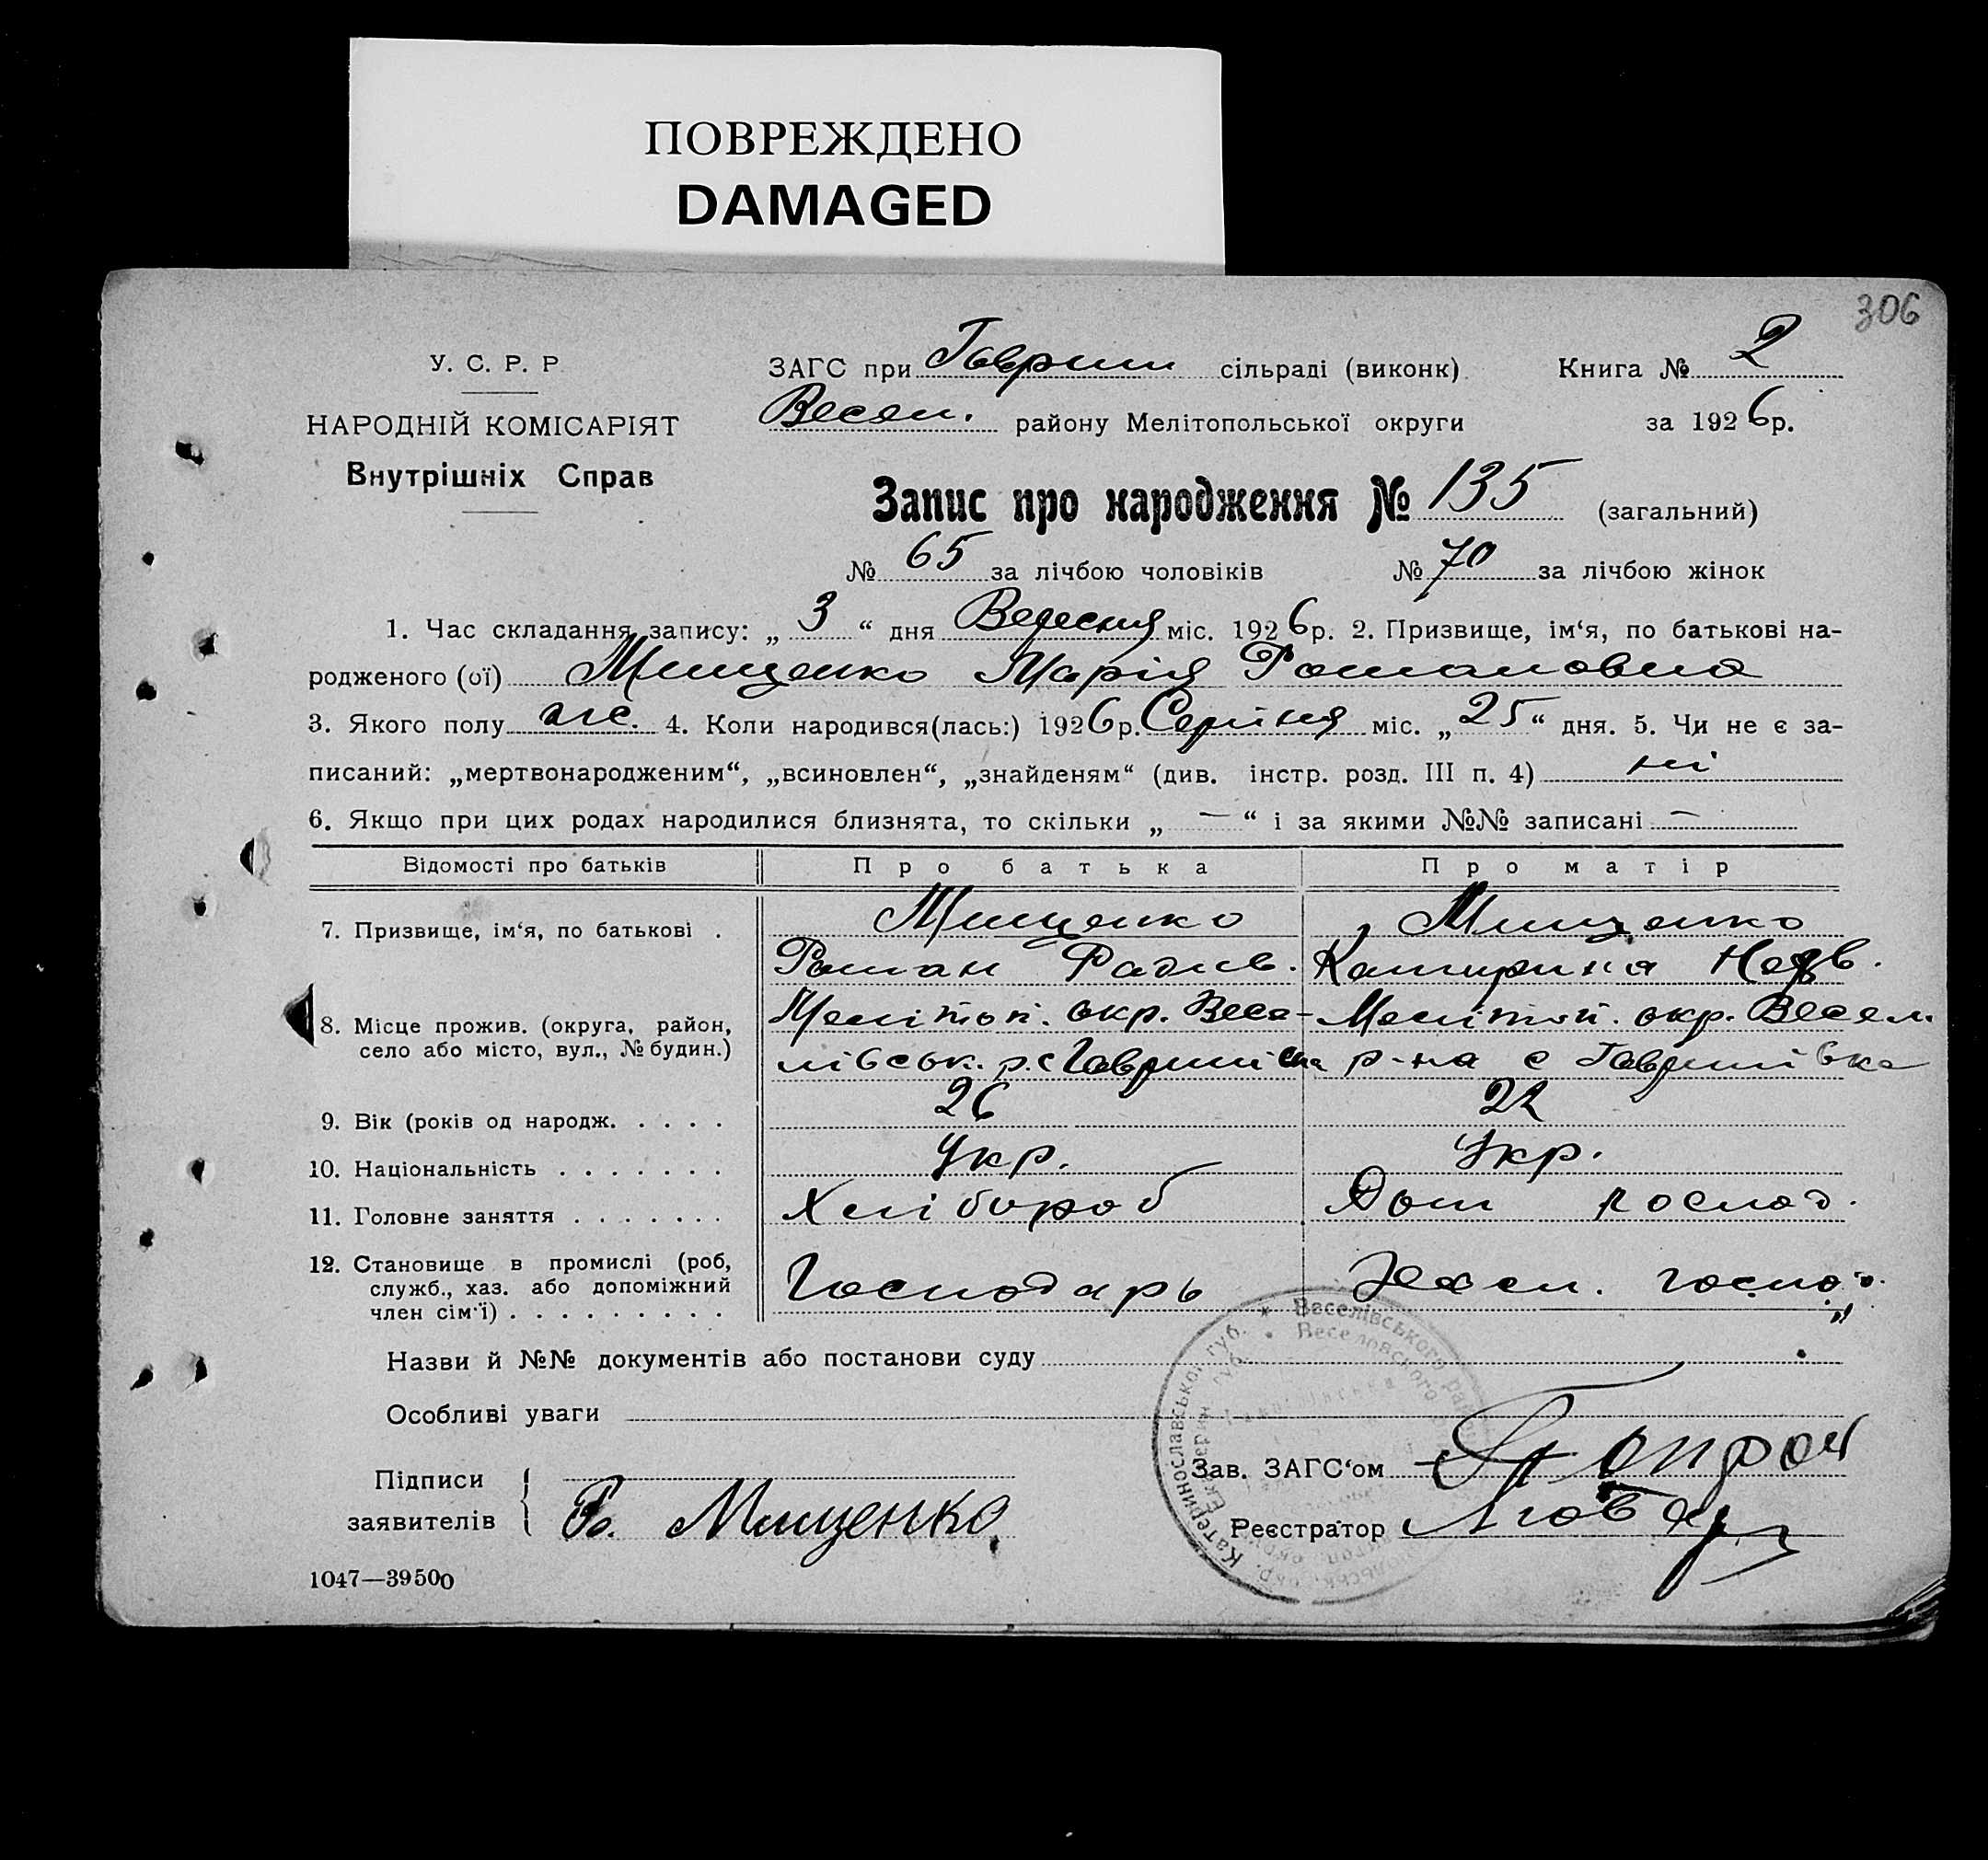 ПОВРЕЖДЕНО
DAMAGED
306
У. С. Р. Р
НАРОДНІЙ КОМІСАРІЯТ
Внутрішніх Справ
ЗАГС при Гаврил сільраді (виконк) Книга № 2
Весел. району Мелітопольської округи за 1926р.
Запис про народження № 135 (загальний)
№ 65 за лічбою чоловіків № 70 за лічбою жінок
1. Час складання запису: „ 3 “ дня Вересня міс. 1926р. 2. Призвище, ім‘я, по батькові на-
родженого (ої) Мищенко Марія Романовна
3. Якого полу жіс. 4. Коли народився(лась:) 1926р. Серпня міс. „ 25 “ дня. 5. Чи не є за-
писаний: „мертвонародженим“, „всиновлен“, „знайденям“ (див. інстр. розд. III п. 4) ні
6. Якщо при цих родах народилися близнята, то скільки „ — “ і за якими №№ записані —
Відомості про батьків Про батька Про матір
7. Призвище, ім‘я, по батькові . Мищенко Мищенко
Роман Радив. Катирина
8. Місце прожив. (округа, район, Мелітоп. окр. Весе- Мелітоп. окр. Весел.
село або місто, вул., № будин.) лівськ. р. с Гаврилівка р-на с Гаврилівка
9. Вік (років од народж. . . . . 26 22
10. Національність . . . . . . . Укр. Укр.
11. Головне заняття . . . . . . . Хлібороб Дом господ.
12. Становище в промислі (роб, Господарь господ.
служб., хаз. або допоміжний
член сім‘ї) . . . . . . . . .
Назви й №№ документів або постанови суду
Особливі уваги
Підписи
заявителів Ро. Мищенко
Зав. ЗАГС‘ом
Реєстратор
Катеринославської губ. * Веселівського
Веселовского
1047—39500